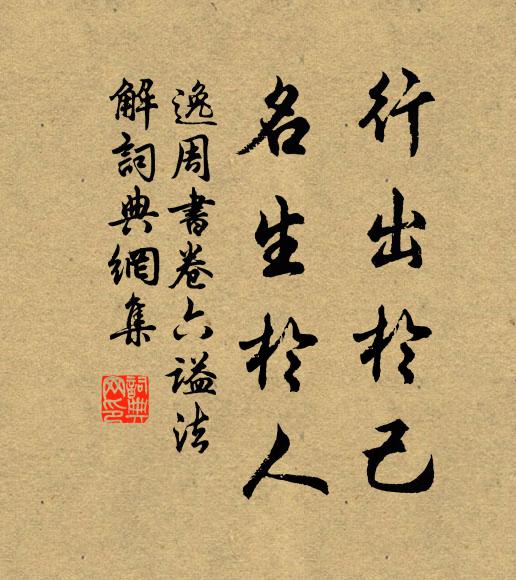 行出於己
名生於人
逸周書卷六謚法
解詞典網集
詞典
网印